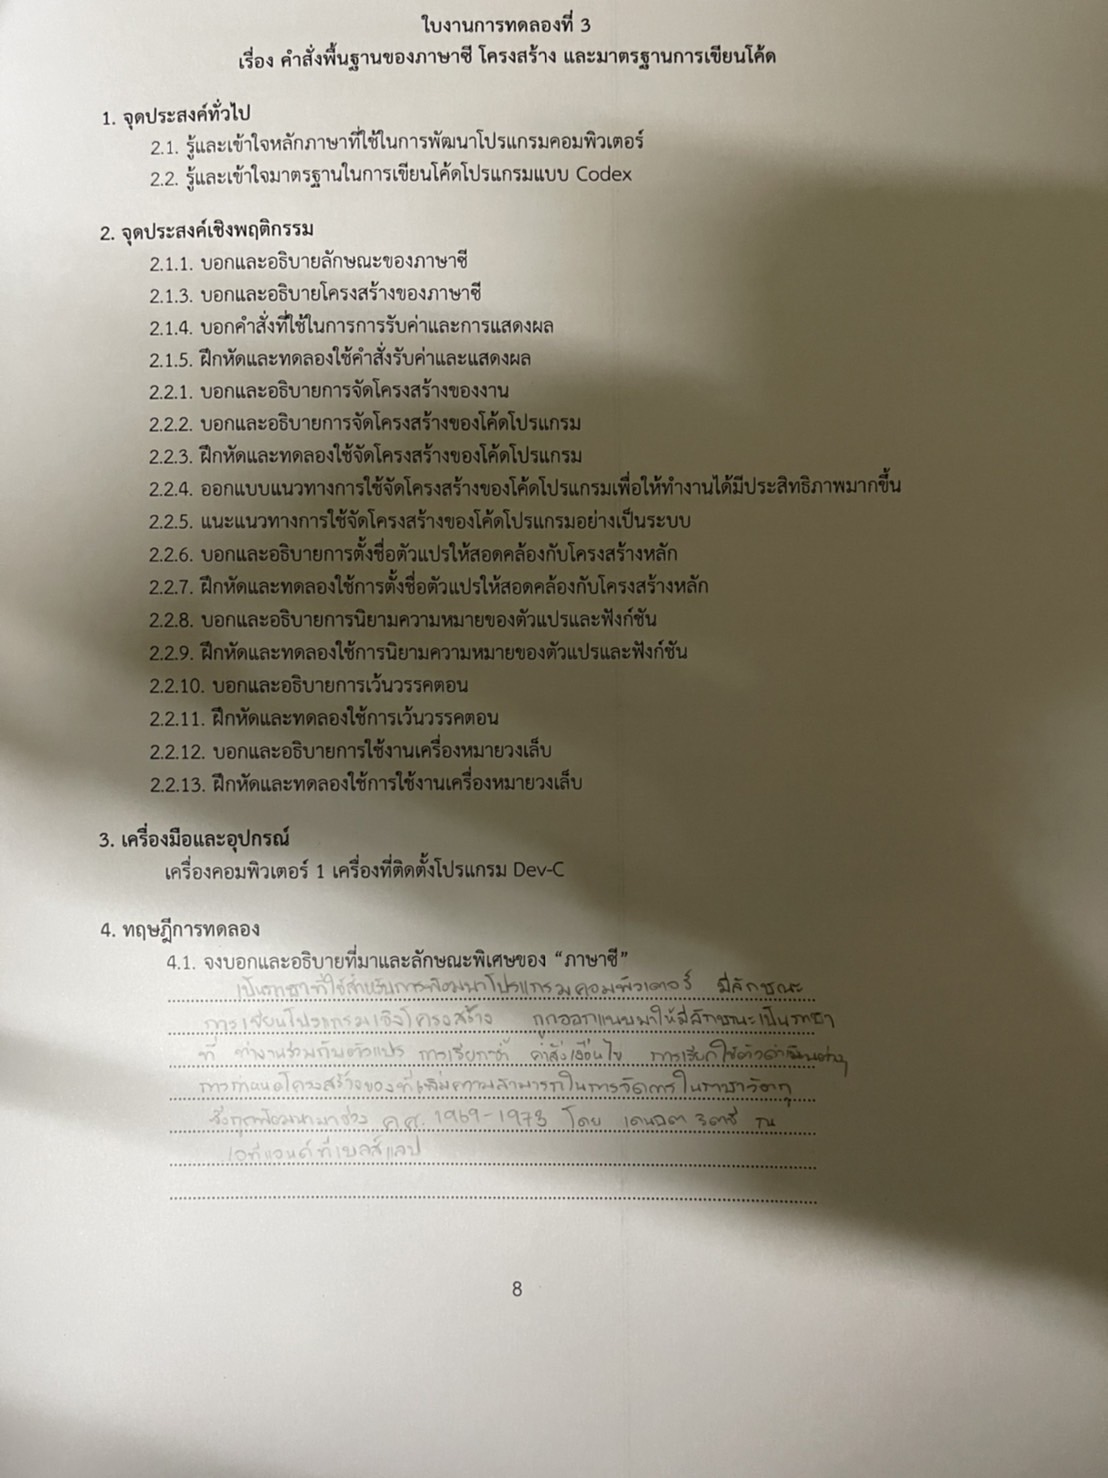 ใบงานการทดลองที่ 3
เรื่อง คำสั่งพื้นฐานของภาษาซี โครงสร้าง และมาตรฐานการเขียนโค้ด
1. จุดประสงค์ทั่วไป
2.1. รู้และเข้าใจหลักภาษาที่ใช้ในการพัฒนาโปรแกรมคอมพิวเตอร์
2.2. รู้และเข้าใจมาตรฐานในการเขียนโค้ดโปรแกรมแบบ Codex
2. จุดประสงค์เชิงพฤติกรรม
2.1.1. บอกและอธิบายลักษณะของภาษาซี
2.1.3. บอกและอธิบายโครงสร้างของภาษาซี
2.1.4. บอกคำสั่งที่ใช้ในการการรับค่าและการแสดงผล
2.1.5. ฝึกหัดและทดลองใช้คำสั่งรับค่าและแสดงผล
2.2.1. บอกและอธิบายการจัดโครงสร้างของงาน
2.2.2. บอกและอธิบายการจัดโครงสร้างของโค้ดโปรแกรม
2.2.3. ฝึกหัดและทดลองใช้จัดโครงสร้างของโค้ดโปรแกรม
2.2.4. ออกแบบแนวทางการใช้จัดโครงสร้างของโค้ดโปรแกรมเพื่อให้ทำงานได้มีประสิทธิภาพมากขึ้น
2.2.5. แนะแนวทางการใช้จัดโครงสร้างของโค้ดโปรแกรมอย่างเป็นระบบ
2.2.6. บอกและอธิบายการตั้งชื่อตัวแปรให้สอดคล้องกับโครงสร้างหลัก
2.2.7. ฝึกหัดและทดลองใช้การตั้งชื่อตัวแปรให้สอดคล้องกับโครงสร้างหลัก
2.2.8. บอกและอธิบายการนิยามความหมายของตัวแปรและฟังก์ชัน
2.2.9. ฝึกหัดและทดลองใช้การนิยามความหมายของตัวแปรและฟังก์ชัน
2.2.10. บอกและอธิบายการเว้นวรรคตอน
2.2.11. ฝึกหัดและทดลองใช้การเว้นวรรคตอน
2.2.12. บอกและอธิบายการใช้งานเครื่องหมายวงเล็บ
2.2.13. ฝึกหัดและทดลองใช้การใช้งานเครื่องหมายวงเล็บ
3. เครื่องมือและอุปกรณ์
เครื่องคอมพิวเตอร์ 1 เครื่องที่ติดตั้งโปรแกรม Dev-C
4. ทฤษฎีการทดลอง
4.1. จงบอกและอธิบายที่มาและลักษณะพิเศษของ “ภาษาซี”
เป็นภาษาที่ใช้สำหรับการพัฒนาโปรแกรมคอมพิวเตอร์ มีลักษณะ
การเขียนโปรแกรมเชิงโครงสร้าง ถูกออกแบบมาให้มีลักษณะเป็นภาษา
ที่ ทำงานร่วมกับตัวแปร การเรียกซ้ำ คำสั่งเงื่อนไข การเรียกใช้ตัวดำเนินต่างๆ
การกำหนดโครงสร้างของที่เพิ่มความสามารถในการจัดการในภาษา
ซึ่งถูกพัฒนามาช่วง ค.ศ. 1969-1973 โดย เดนนิส ริตชี่ ณ
เอทีแอนด์ทีเบลล์แลป
8